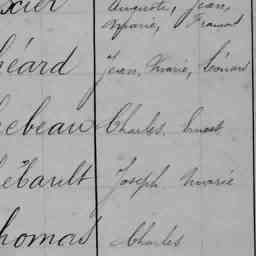 xier Auguste, Jean,
Marie, Framont
héard Jean, Marie, Léonard
ebeau Charles Ernest
ébault Joseph Marie
homas Charles